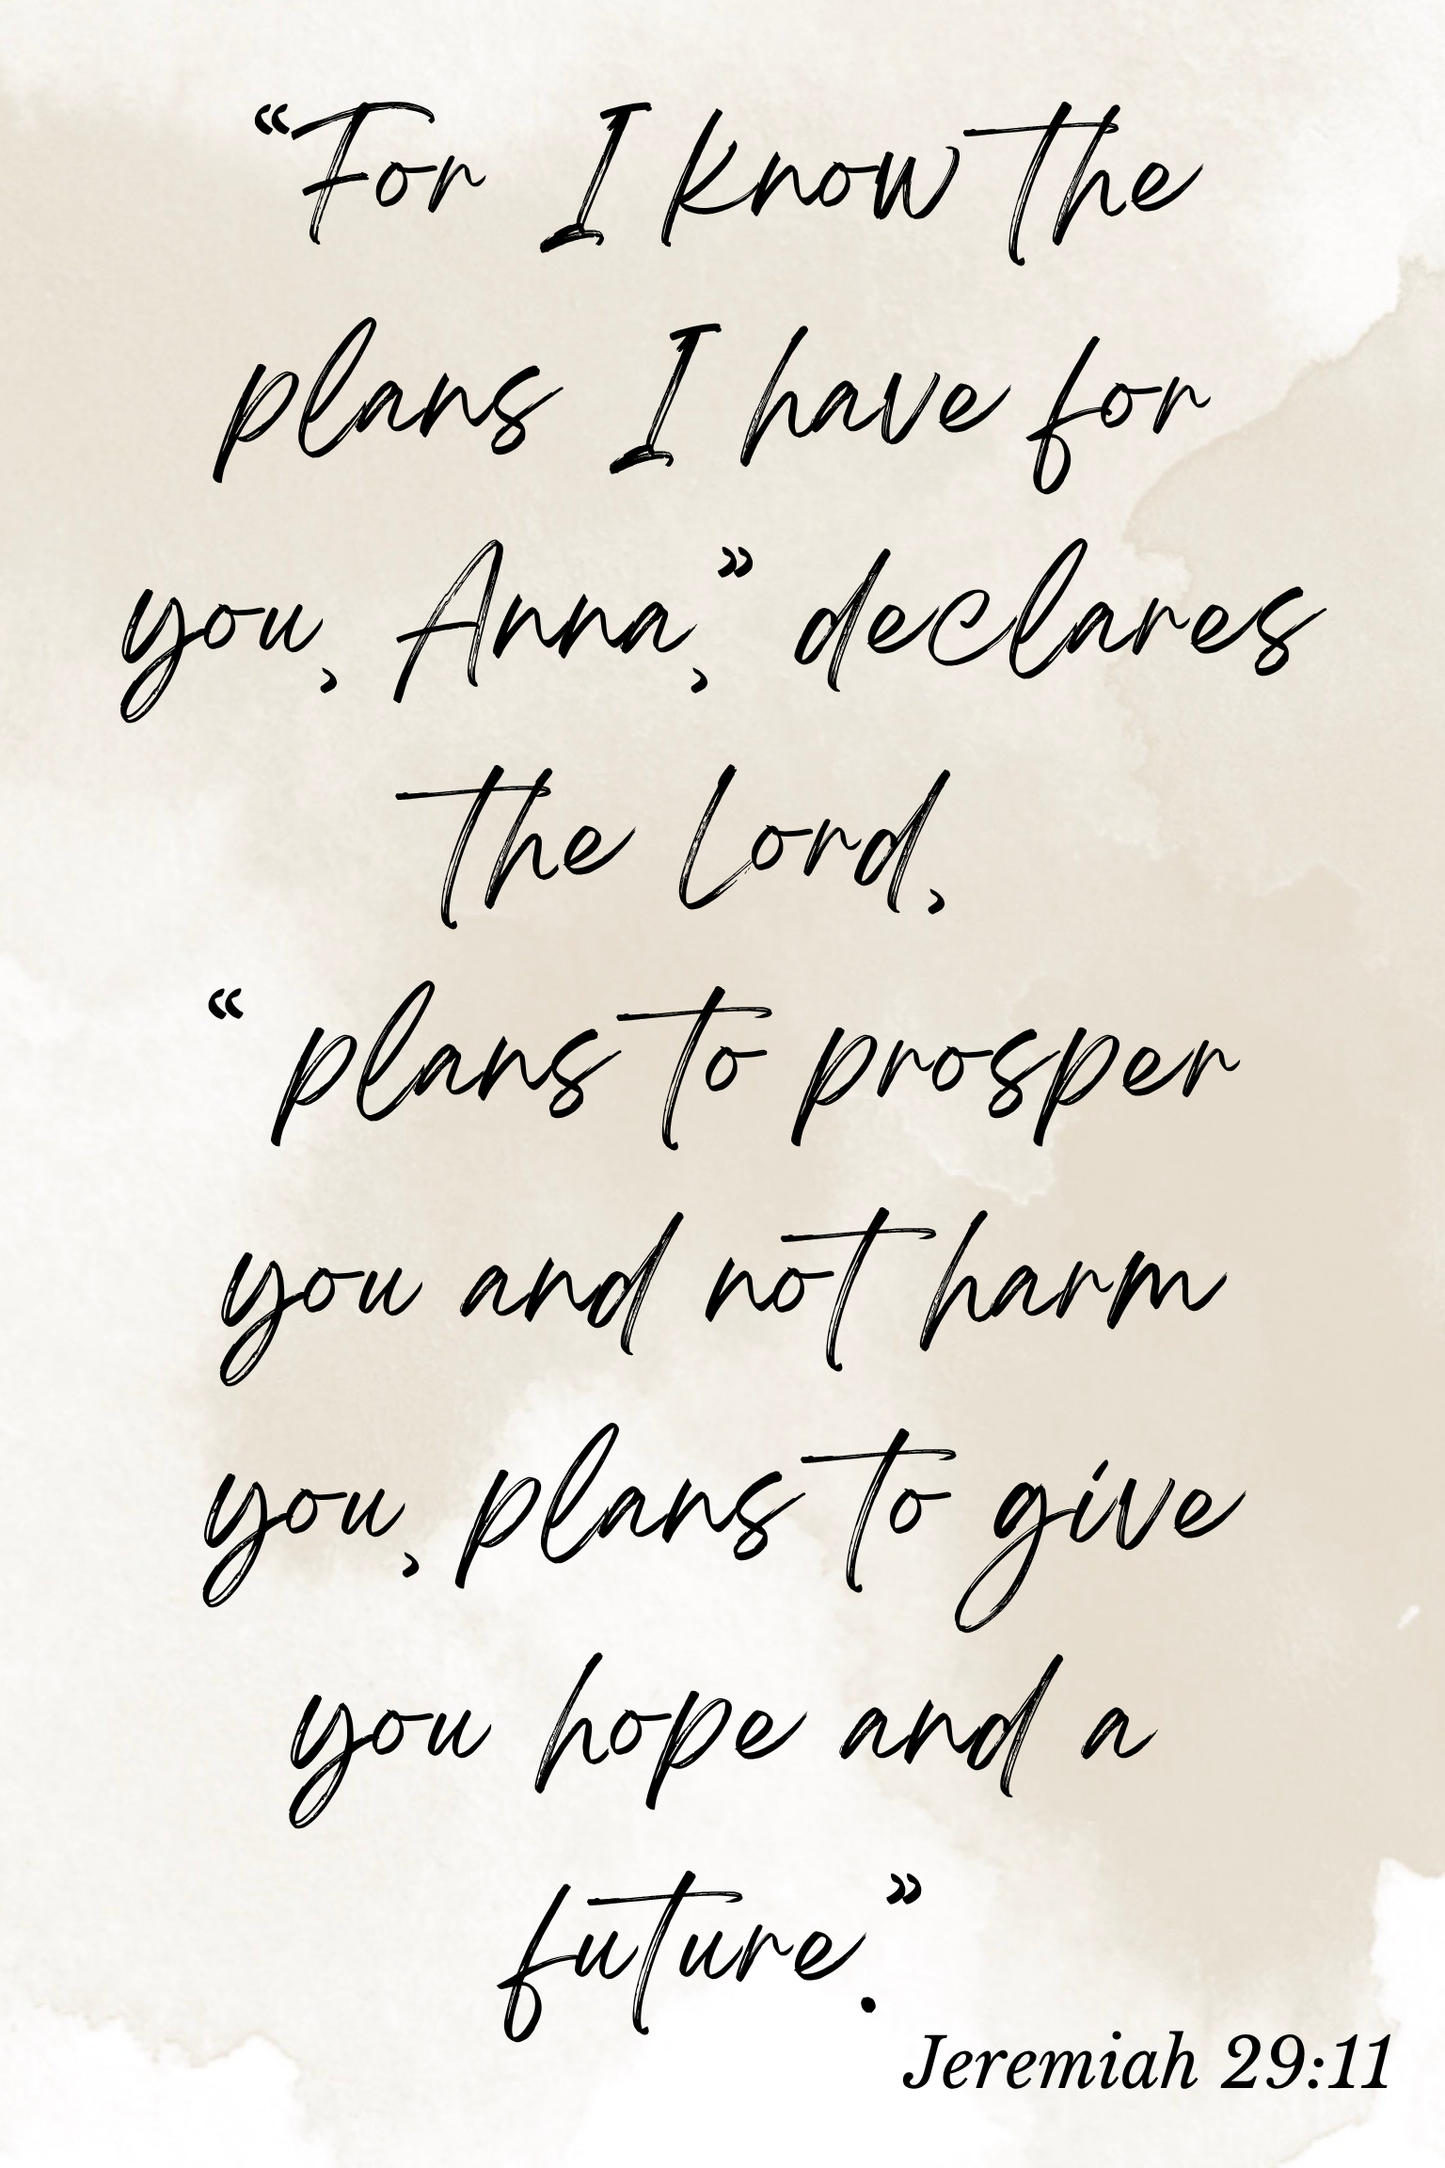 “For I know the
plans I have for
you, Anna,” declares
the Lord,
“ plans to prosper
you and not harm
you, plans to give
you hope and a
future.”
Jeremiah 29:11